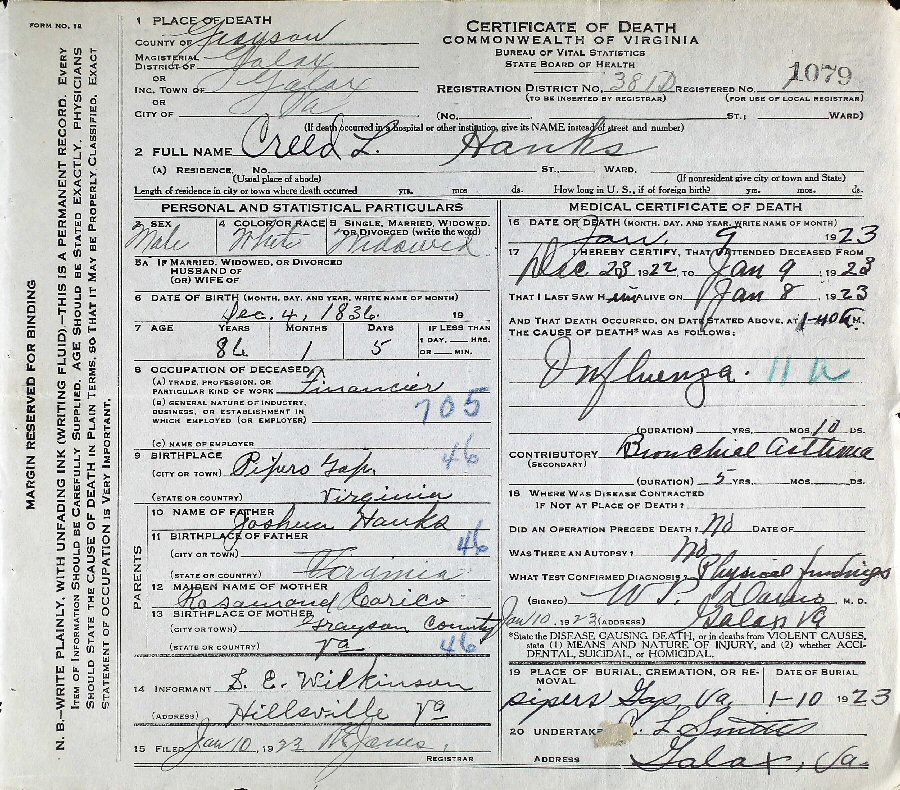 FORM NO. 12
MARGIN RESERVED FOR BINDING
N. B.—WRITE PLAINLY, WITH UNFADING INK (WRITING FLUID).—THIS IS A PERMANENT RECORD. EVERY
ITEM OF INFORMATION SHOULD BE CAREFULLY SUPPLIED. AGE SHOULD BE STATED EXACTLY. PHYSICIANS
SHOULD STATE THE CAUSE OF DEATH IN PLAIN TERMS, SO THAT IT MAY BE PROPERLY CLASSIFIED. EXACT
STATEMENT OF OCCUPATION IS VERY IMPORTANT.
1 PLACE OF DEATH
COUNTY OF Grayson
MAGISTERIAL DISTRICT OF Galax
OR
INC. TOWN OF Galax
OR Va
CITY OF
CERTIFICATE OF DEATH
COMMONWEALTH OF VIRGINIA
BUREAU OF VITAL STATISTICS
STATE BOARD OF HEALTH
1079
REGISTRATION DISTRICT NO. 381D REGISTERED NO.
(TO BE INSERTED BY REGISTRAR) (FOR USE OF LOCAL REGISTRAR)
(NO. ST.; WARD)
(If death occurred in a hospital or other institution, give its NAME instead of street and number)
2 FULL NAME Creed L. Hanks
(A) RESIDENCE. NO. ST., WARD.
(Usual place of abode) (If nonresident give city or town and State)
Length of residence in city or town where death occurred yrs. mos ds. How long in U. S., if of foreign birth? yrs. mos. ds.
PERSONAL AND STATISTICAL PARTICULARS
3 SEX 4 COLOR OR RACE 5 SINGLE, MARRIED, WIDOWED, OR DIVORCED (write the word)
Male White Widowed
5A IF MARRIED, WIDOWED, OR DIVORCED
HUSBAND OF
(OR) WIFE OF
6 DATE OF BIRTH (MONTH, DAY, AND YEAR, WRITE NAME OF MONTH)
Dec. 4, 1836 19
7 AGE YEARS MONTHS DAYS IF LESS THAN
1 DAY, HRS.
OR MIN.
86 1 5
8 OCCUPATION OF DECEASED
(A) TRADE, PROFESSION, OR
PARTICULAR KIND OF WORK Financier
(B) GENERAL NATURE OF INDUSTRY,
BUSINESS, OR ESTABLISHMENT IN
WHICH EMPLOYED (OR EMPLOYER)
705
(C) NAME OF EMPLOYER
9 BIRTHPLACE 46
(CITY OR TOWN) Pipers Gap
(STATE OR COUNTRY) Virginia
PARENTS
10 NAME OF FATHER Joshua Hanks
11 BIRTHPLACE OF FATHER 46
(CITY OR TOWN)
(STATE OR COUNTRY) Virginia
12 MAIDEN NAME OF MOTHER
Rosamond Carico
13 BIRTHPLACE OF MOTHER
(CITY OR TOWN) Grayson County
(STATE OR COUNTRY) Va 46
14 INFORMANT S. E. Wilkinson
(ADDRESS) Hillsville Va
15 FILED Jan 10, 1923
REGISTRAR
MEDICAL CERTIFICATE OF DEATH
16 DATE OF DEATH (MONTH, DAY, AND YEAR, WRITE NAME OF MONTH)
Jan. 9 1923
17 I HEREBY CERTIFY, THAT I ATTENDED DECEASED FROM
Dec 28 1922 TO Jan 9, 1923
THAT I LAST SAW HIM ALIVE ON Jan 8, 1923
AND THAT DEATH OCCURRED, ON DATE STATED ABOVE, AT 1-40 A M.
THE CAUSE OF DEATH* WAS AS FOLLOWS:
Influenza. 11 a
(DURATION) YRS. MOS. 10 DS.
CONTRIBUTORY Bronchial asthma
(SECONDARY)
(DURATION) 5 YRS. MOS. DS.
18 WHERE WAS DISEASE CONTRACTED
IF NOT AT PLACE OF DEATH?
DID AN OPERATION PRECEDE DEATH? No DATE OF
WAS THERE AN AUTOPSY? No
WHAT TEST CONFIRMED DIAGNOSIS? Physical findings
(SIGNED) W. P. M. D.
Jan 10, 1923 (ADDRESS) Galax Va
*State the DISEASE CAUSING DEATH, or in deaths from VIOLENT CAUSES,
state (1) MEANS AND NATURE OF INJURY, and (2) whether ACCI-
DENTAL, SUICIDAL, or HOMICIDAL.
19 PLACE OF BURIAL, CREMATION, OR RE-
MOVAL DATE OF BURIAL
Pipers Gap, Va. 1-10 1923
20 UNDERTAKE L Smith
ADDRESS Galax, Va.